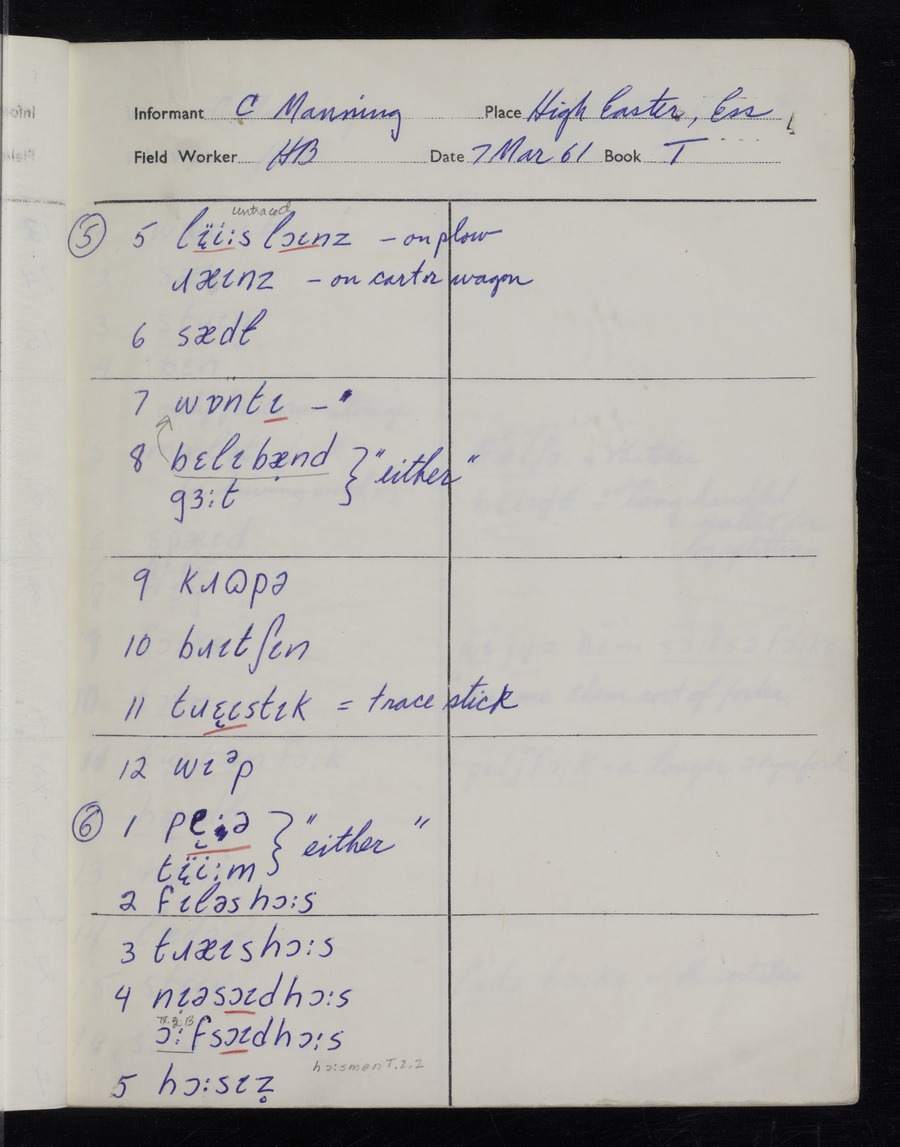 Informant C Manning Place High Easter, Ess
Field Worker HB Date 7 Mar 61 Book T
untraced
⑤ 5 lï̞ï:s lɔɪnz – on plow
ɹæɪnz – on cart or wagon
6 sædɫ
7 wɒntɪ –
8 bɛlɪbænd } "either"
gɜ:t
9 kɹɷpə
10 bɹɪtʃɪn
11 tɹɛ̞ɪstɪk = trace stick
12 wɪᵊp
⑥ 1 pe̞:ə } "either"
tï̞ï:m
2 fɪləshɔ:s
3 tɹæɪshɔ:s
4 nɪəsɔɪdhɔ:s
ɔ:fsɔɪdhɔ:s
5 hɔ:sɪz̥
hɔ:smən T.2.2